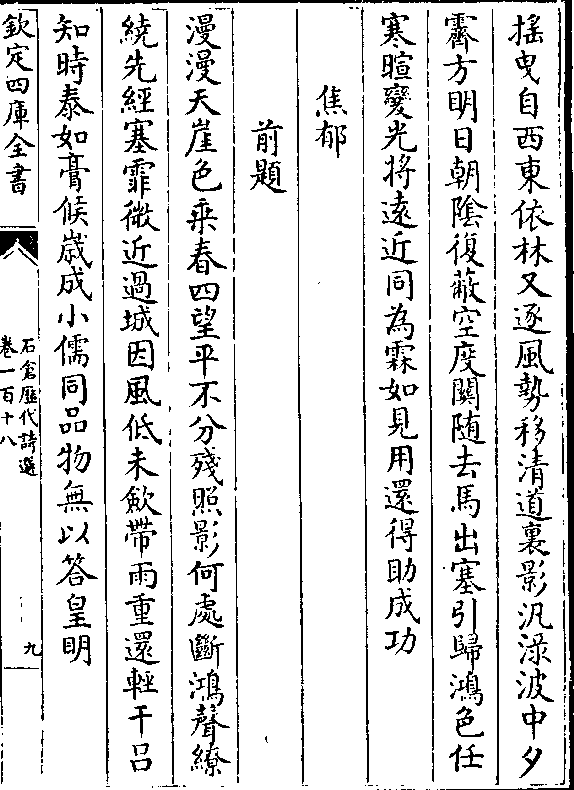 搖曳自西東依林又逐風勢移清道裏影汎淥波中夕
霽方明日朝陰復蔽空度關随去馬出塞引歸鴻色任
寒暄變光將遠近同為霖如見用還得助成功
焦郁
前題
漫漫天崖色乘春四望平不分殘照影何處斷鴻聲繚
繞先經塞霏微近過城因風低未歛帶雨重還輕干吕
知時泰如膏候歳成小儒同品物無以答皇明
欽定四庫全書
石倉歷代詩選
卷一百十八
九